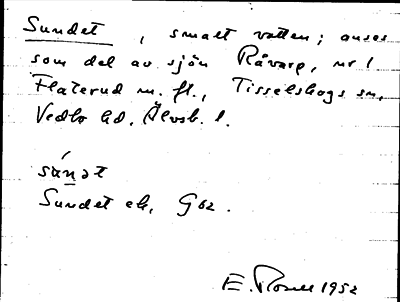 Sundet, smalt vatten; anses
som del av sjön Råvarp, nr 1
Flaterud m. fl., Tisselskogs sn,
Vedbo hd, Älvsb. l.
súnət
Sundet ek, G62.
E. 1952